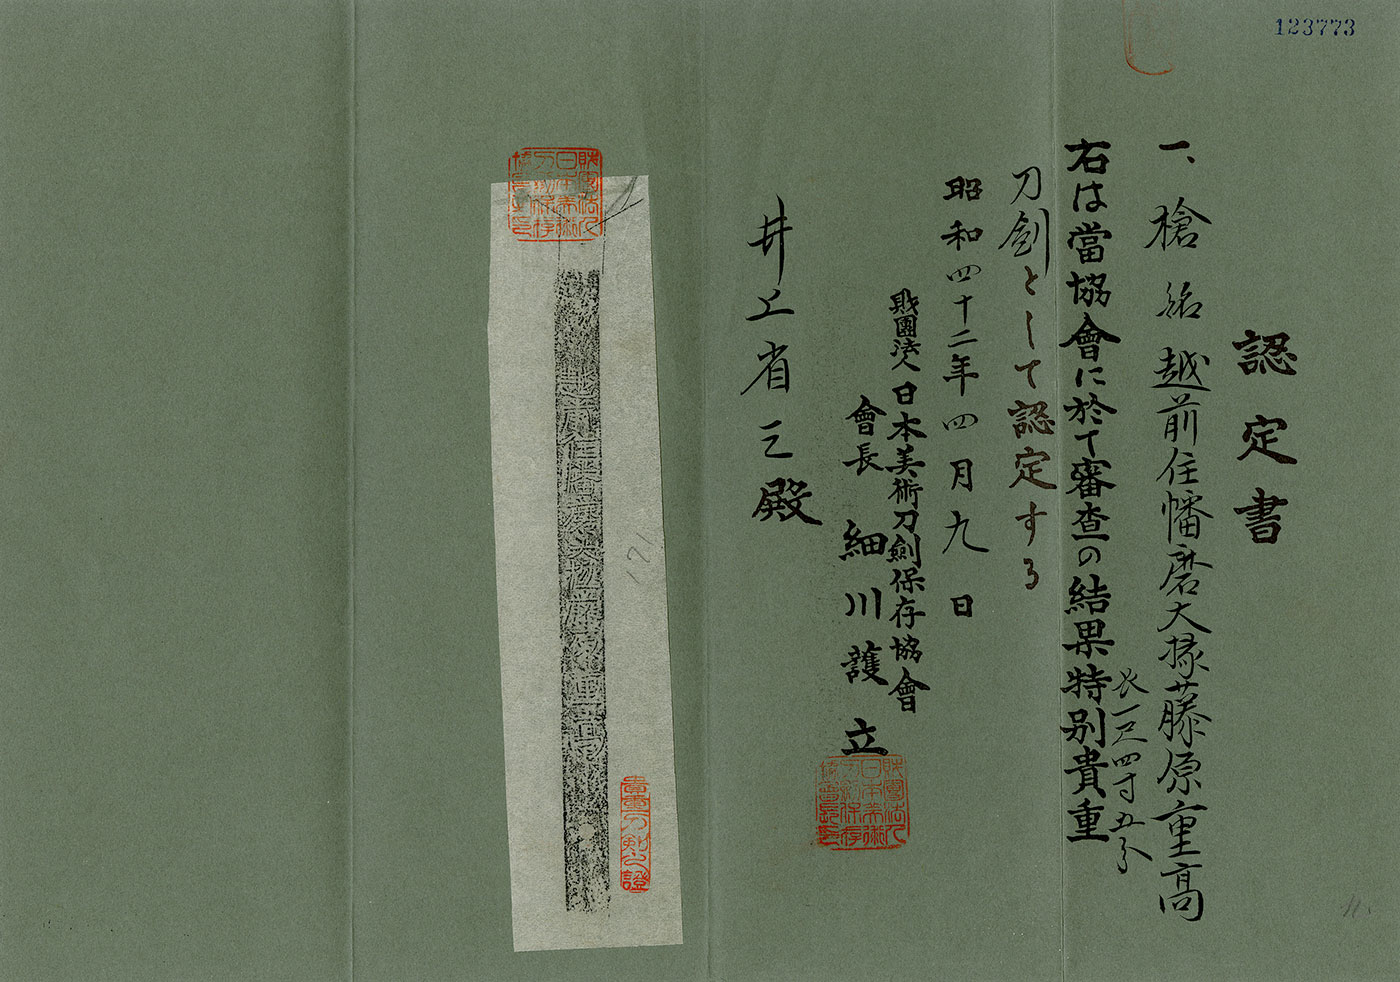 123773
認定書
一、槍 銘 越前住幡磨大掾藤原重高
長一尺四寸五分
右は當協會に於て審査の結果特別貴重
刀劍として認定する
昭和四十二年四月九日
財團法人日本美術刀劍保存協會
會長 細川護立
井上省三殿
財團法人日本美術刀劍保存協會長印
財團法人日本美術刀劍保存協會之印
越前住幡磨大掾藤原重高
121
貴重刀剣之證